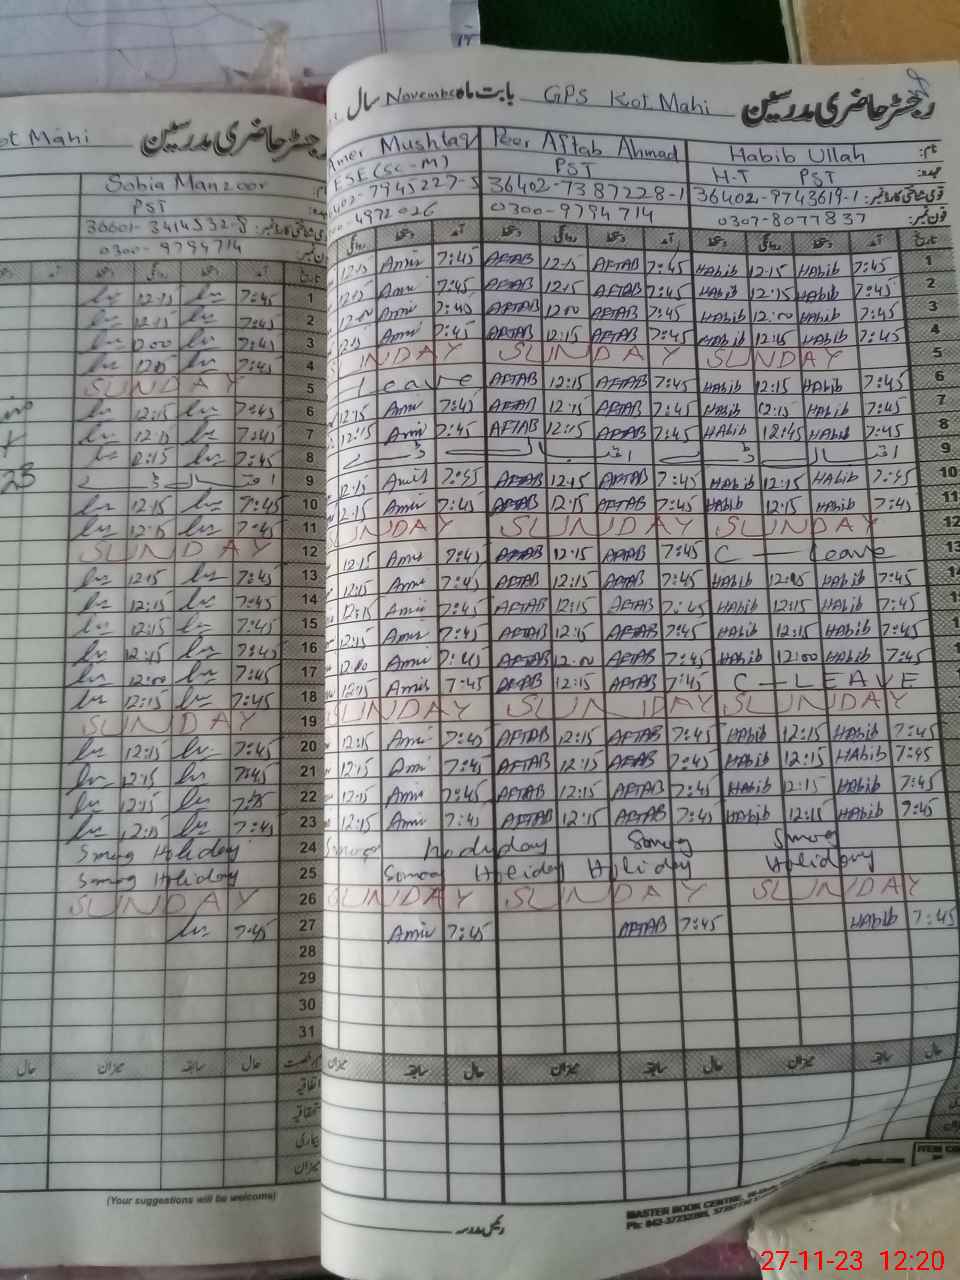 رجسٹر حاضری مدرسین GPS Kot Mahi بابت ماہ November سال
نام: Habib Ullah Peer Aftab Ahmad Amer Mushtaq
عہدہ: H-T PST PST ESE (Sc-M)
قومی شناختی کارڈ نمبر: 36402-9743619-1 36402-7387228-1
فون نمبر: 0307-8077837 0300-9794714
تاریخ آمد دستخط روانگی دستخط آمد دستخط روانگی دستخط آمد دستخط روانگی
1 7:45 Habib 12:15 Habib 7:45 AFTAB 12:15 AFTAB 7:45 Amir 12:15
2 7:45 Habib 12:15 Habib 7:45 AFTAB 12:15 AFTAB 7:45 Amir 12:15
3 7:45 Habib 12:00 Habib 7:45 AFTAB 12:00 AFTAB 7:45 Amir 12:00
4 7:45 Habib 12:15 Habib 7:45 AFTAB 12:15 AFTAB 7:45 Amir
5 SUNDAY SUNDAY SUNDAY
6 7:45 Habib 12:15 Habib 7:45 AFTAB 12:15 AFTAB leave
7 7:45 Habib 12:15 Habib 7:45 AFTAB 12:15 AFTAB 7:45 Amir 12:15
8 7:45 Habib 12:45 Habib 7:45 AFTAB 12:15 AFTAB 7:45 Amir 12:15
9 اقبال ڈے اقبال ڈے
10 7:45 Habib 12:15 Habib 7:45 AFTAB 12:15 AFTAB 7:45 Amir 12:15
11 7:45 Habib 12:15 Habib 7:45 AFTAB 12:15 AFTAB 7:45 Amir 12:15
12 SUNDAY SUNDAY SUNDAY
13 C — Leave 7:45 AFTAB 12:15 AFTAB 7:45 Amir 12:15
7:45 Habib 12:15 Habib 7:45 AFTAB 12:15 AFTAB 7:45 Amir 12:15
7:45 Habib 12:15 Habib 7:45 AFTAB 12:15 AFTAB 7:45 Amir 12:15
7:45 Habib 12:15 Habib 7:45 AFTAB 12:15 AFTAB 7:45 Amir 12:15
7:45 Habib 12:00 Habib 7:45 AFTAB 12:00 AFTAB 7:45 Amir 12:00
C — LEAVE 7:45 AFTAB 12:15 AFTAB 7:45 Amir 12:15
SUNDAY SUNDAY SUNDAY
7:45 Habib 12:15 Habib 7:45 AFTAB 12:15 AFTAB 7:45 Amir 12:15
7:45 Habib 12:15 Habib 7:45 AFTAB 12:15 AFTAB 7:45 Amir 12:15
7:45 Habib 12:15 Habib 7:45 AFTAB 12:15 AFTAB 7:45 Amir 12:15
7:45 Habib 12:15 Habib 7:45 AFTAB 12:15 AFTAB 7:45 Amir 12:15
Smog Smog holyday Smog
Holiday Holiday Holiday Smog
SUNDAY SUNDAY SUNDAY
7:45 Habib 7:45 AFTAB 7:45 Amir
حال سابقہ میزان حال سابقہ میزان حال سابقہ میزان
رئیس مدرسہ
MASTER BOOK CENTRE,
رجسٹر حاضری مدرسین Kot Mahi
نام: Sobia Manzoor
PST
36601-3414532-8
فون نمبر: 0300-9794714
تاریخ آمد دستخط روانگی دستخط آمد
1 7:45 12:15
2 7:45 12:15
3 7:45 12:00
4 7:45 12:15
5 SUNDAY
6 7:45 12:15
7 7:45 12:15
8 7:45 12:15
9 اقبال ڈے
10 7:45 12:15
11 7:45 12:15
12 SUNDAY
13 7:45 12:15
14 7:45 12:15
15 7:45 12:15
16 7:45 12:15
17 7:45 12:00
18 7:45 12:15
19 SUNDAY
20 7:45 12:15
21 7:45 12:15
22 7:45 12:15
23 7:45 12:15
24 Smog Holiday
25 Smog Holiday
26 SUNDAY
27 7:45
28
29
30
31
حال سابقہ میزان حال
اتفاقیہ
استحقاقیہ
بیماری
میزان
(Your suggestions will be welcome)
27-11-23 12:20